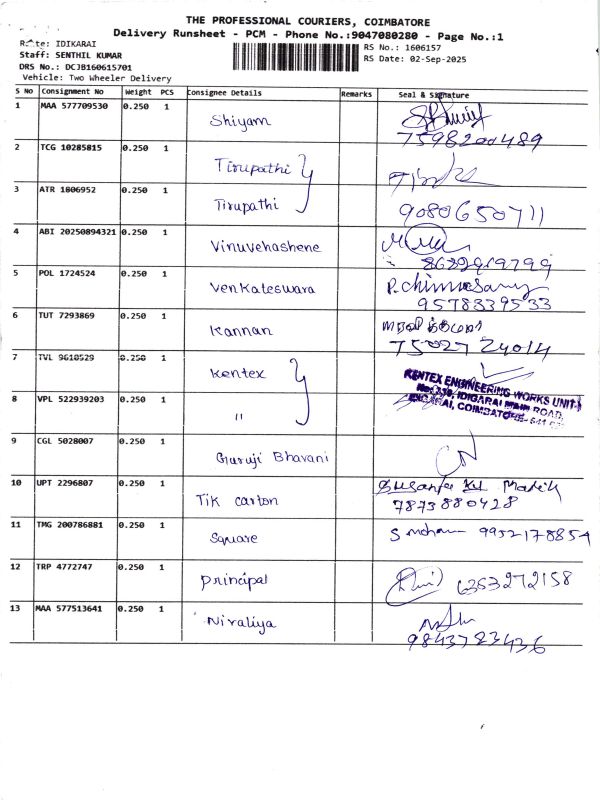 THE PROFESSIONAL COURIERS, COIMBATORE
Delivery Runsheet - PCM - Phone No.:9047080280 - Page No.:1
Route: IDIKARAI
RS No.: 1606157
Staff: SENTHIL KUMAR
RS Date: 02-Sep-2025
DRS No.: DCJB160615701
Vehicle: Two Wheeler Delivery
S No Consignment No Weight PCS Consignee Details Remarks Seal & Signature
1 MAA 577709530 0.250 1 Shiyam
7598200489
2 TCG 10285815 0.250 1 Tirupathi
3 ATR 1806952 0.250 1 Tirupathi
9080650711
4 ABI 20250894321 0.250 1 Vinuvehashene
5 POL 1724524 0.250 1 Venkateswara P. Chinnasamy
9578339533
6 TUT 7293869 0.250 1 Kannan
75027 24014
7 TVL 9610529 0.250 1 Kentex
KENTEX ENGINEERING WORKS UNIT-I
IDIGARAI MAIN ROAD,
IDIGARAI, COIMBATORE- 641
8 VPL 522939203 0.250 1 "
9 CGL 5028007 0.250 1 Guruji Bhavani
10 UPT 2296807 0.250 1 Tik carton
7873880428
11 TMG 200786881 0.250 1 Square S mohan 9952178854
12 TRP 4772747 0.250 1 Principal 6353272158
13 MAA 577513641 0.250 1 Niraliya
9843783436